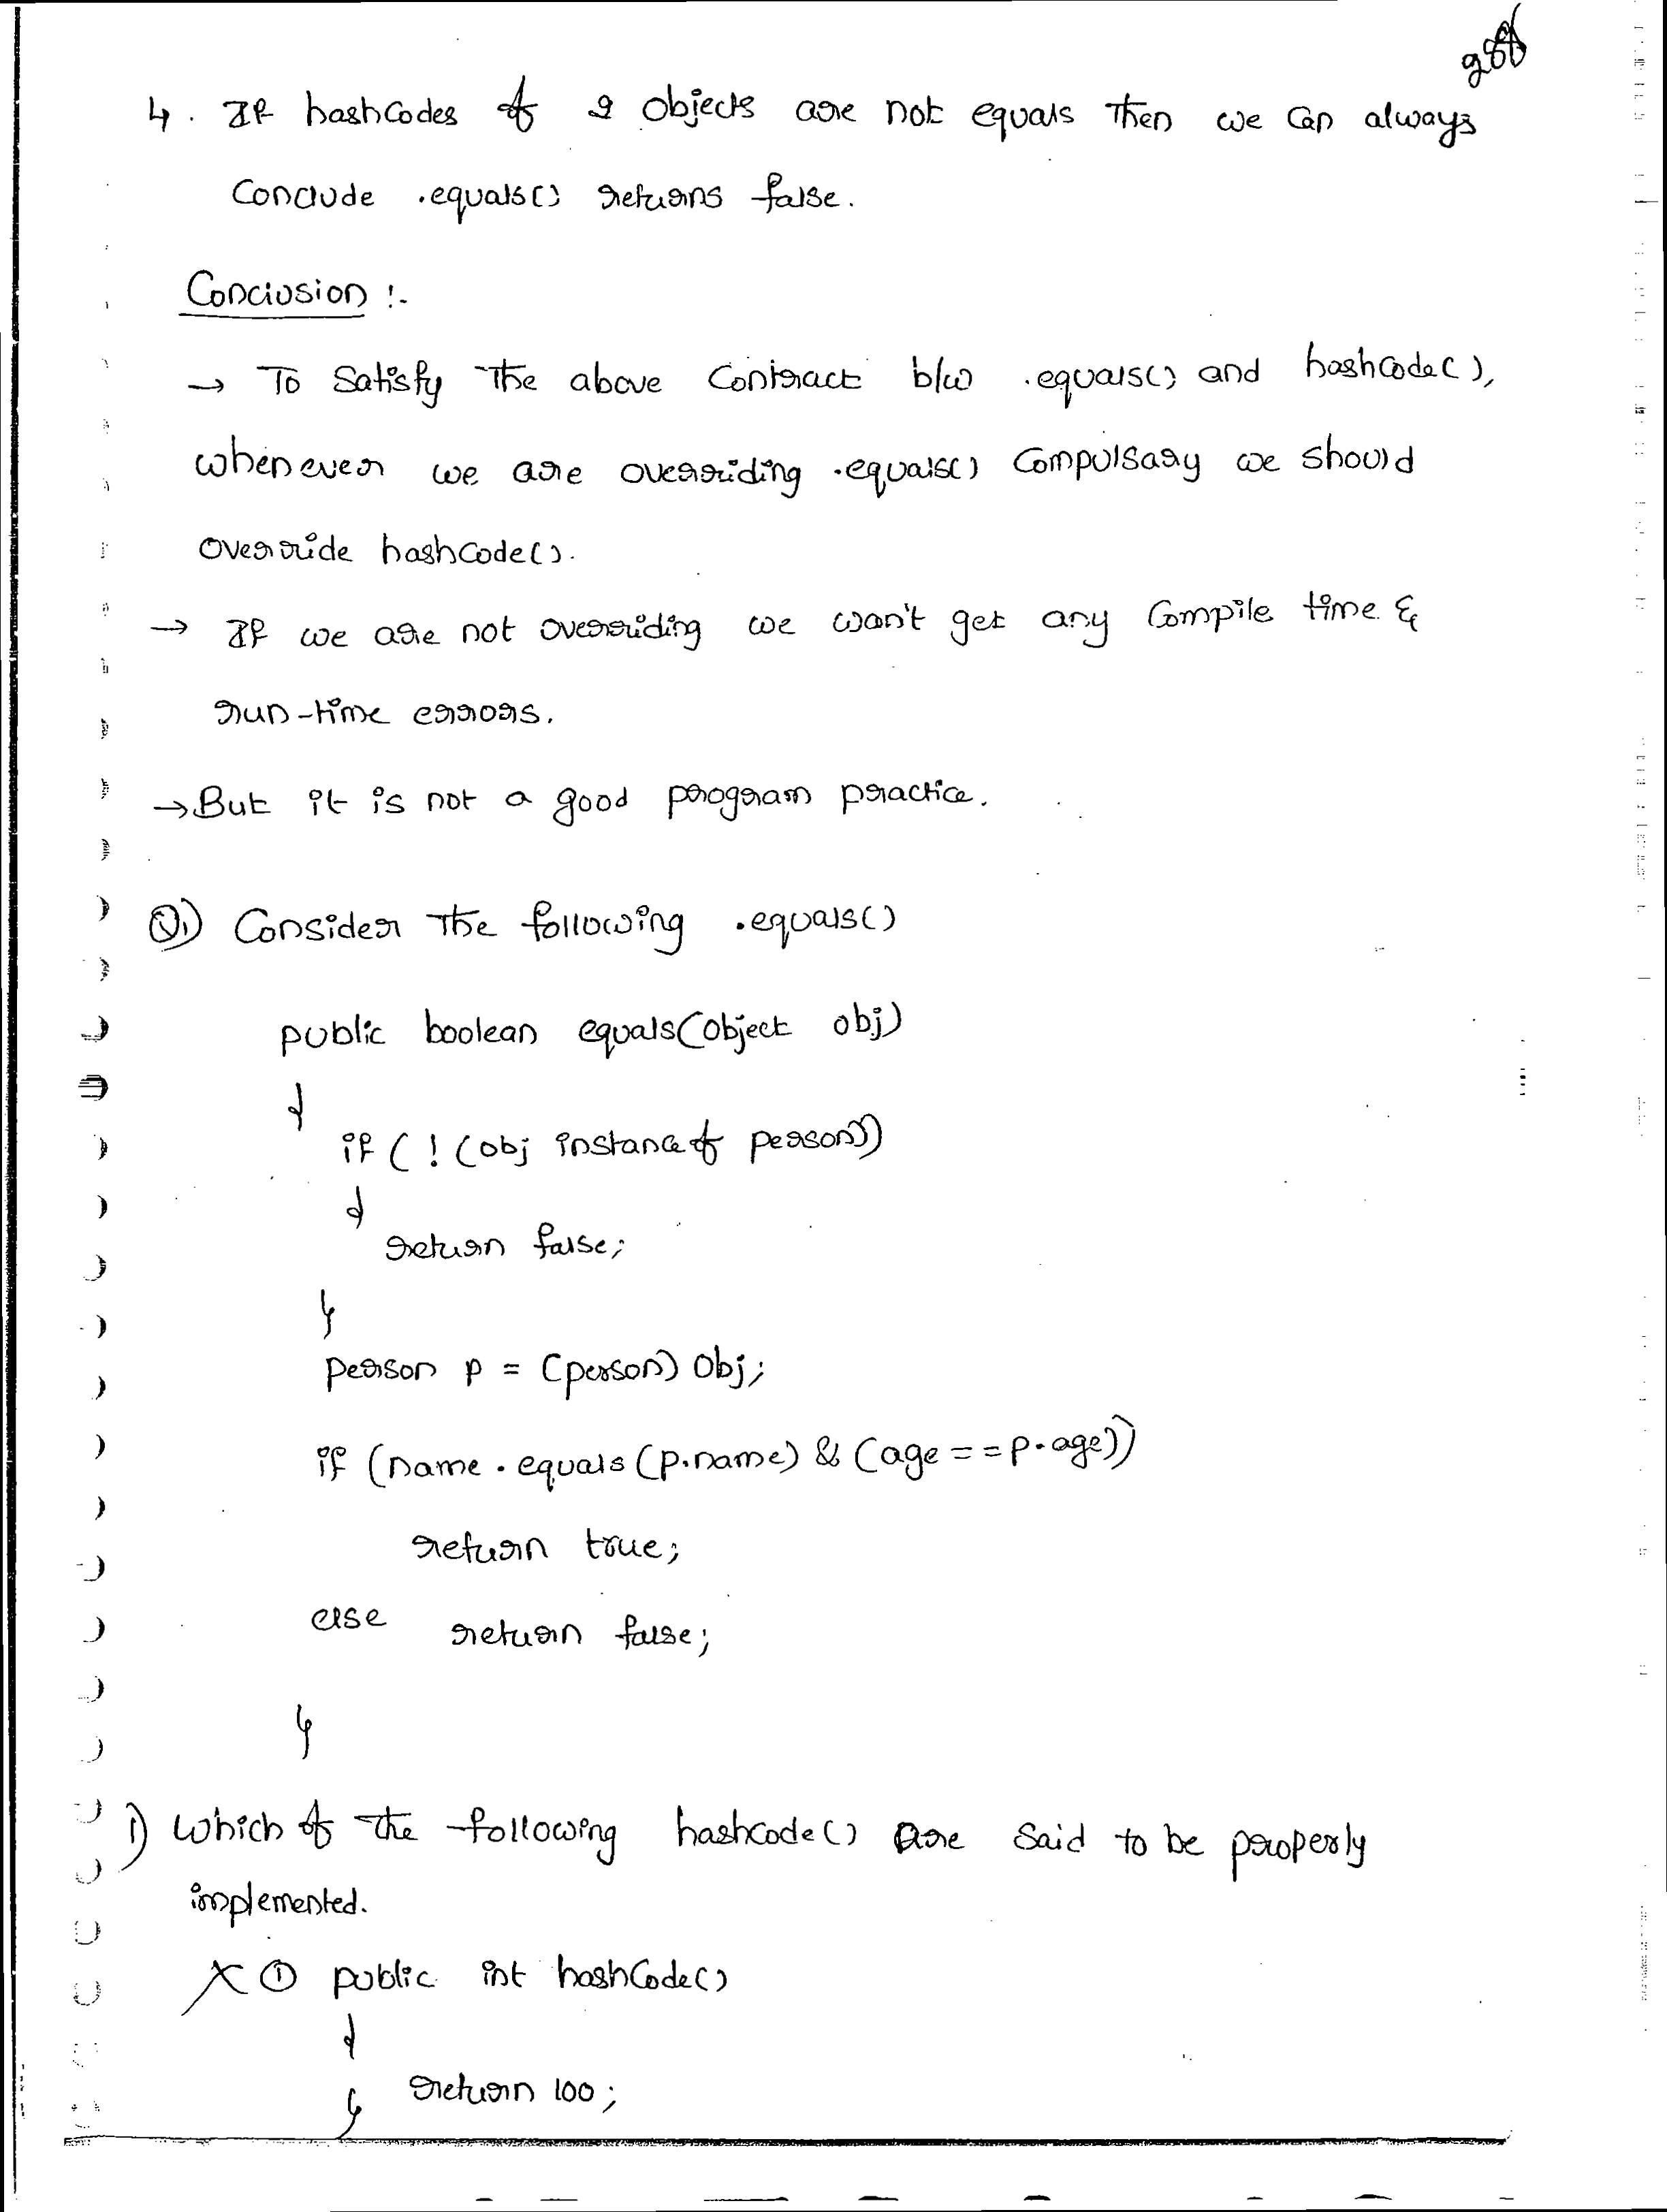 4. If hashCodes of 2 objects are not equals Then we Can always
Conclude .equals() returns false.
Conclusion :-
→ To Satisfy The above Contract b/w .equals() and hashCode(),
whenever we are overriding .equals() Compulsary we should
override hashCode().
→ If we are not overriding we won't get any Compile time &
run-time errors.
→ But it is not a good program practice.
Q1) Consider The following .equals()
public boolean equals(Object obj)
{
if ( ! (obj instanceof person))
{
return false;
}
person p = (person) Obj;
if (name.equals(p.name) & (age == p.age))
return true;
else return false;
}
i) Which of The following hashcode() are Said to be properly
implemented.
X ① public int hashCode()
{
return 100;
}